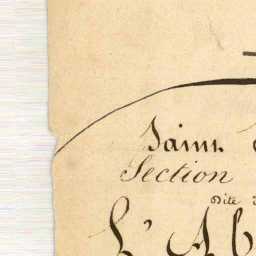 Saint
Section
Dite
L'Ab